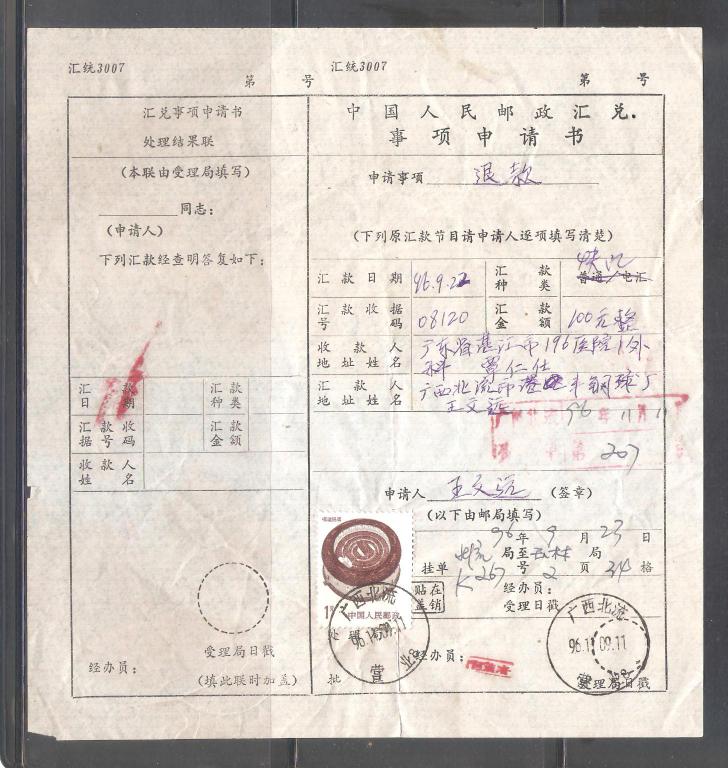 汇统3007
第 号
汇兑事项申请书
处理结果联
(本联由受理局填写)
同志:
(申请人)
下列汇款经查明答复如下:
汇款日期
汇款种类
汇款收据号码
汇款金额
收款人姓名
受理局日戳
经办员:
(填此联时加盖)
汇统3007
第 号
中国人民邮政汇兑
事项申请书
申请事项 退款
(下列原汇款节目请申请人逐项填写清楚)
汇款日期 96.9.22
汇款种类 快汇 普通/电汇
汇款收据号码 08120
汇款金额 100元整
收款人地址姓名 广东省湛江市196医院1外科 覃仁仕
汇款人地址姓名 广西北流市 钢球厂 王文远
96年11月11
第 207
申请人 王文远 (签章)
(以下由邮局填写)
96年9月23日
北流局至玉林局
挂单 K267号2页34格
贴在 盖销
经办员:
受理局日戳
福建民居
1分
中国人民邮政
广西北流
96.11.09.11
营业
处理
经办员:
批
广西北流
96.11.09.11
营业
受理局日戳